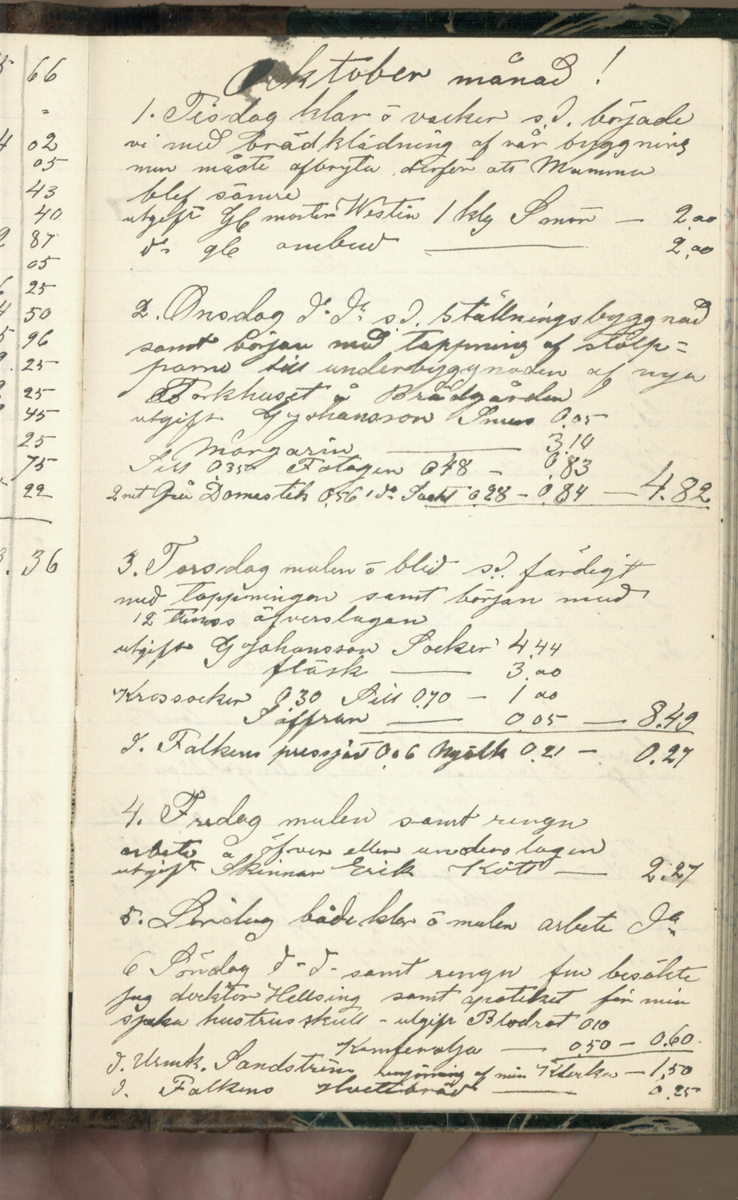 66
"
02
05
43
40
87
05
25
50
96
25
25
45
25
75
22
36
Oktober månad!
1. Tisdag klar o vacker s.d. började
vi med brädklädning af vår byggning
men måste afbryta derför att Mamma
blef sämre
utgift Westin 1 klg Smör — 2,00
d:o ombud — 2,00
2. Onsdag d:o d:o s.d. ställningsbyggnad
samt början med tappning af stolp=
parne till underbyggnaden af nya
Torkhuset å Brädgården
utgift G Johansson Snus 0,05
Margarin — 3,10
Sill 0,35 Fotogen 0,48 - 0,83
2 mt Grå Domestik 0,56 1 d:o 0,28 - 0,84 — 4.82
3. Torsdag mulen o blid s.d. färdigt
med tappningen samt början med
12 tums öfverslagen
utgift G Johansson Socker 4,44
fläsk — 3,00
Krossocker 0,30 Sill 0,70 — 1,00
Saffran — 0,05 — 8.49
d. Falkens pressjäst 0,06 Mjölk 0,21 — 0,27
4. Fredag mulen samt rengn
arbete å öfver eller underslagen
utgift Skinnar Erik Kött — 2,27
5. Lördag både klar o mulen arbete D:o
6 Söndag d:o d:o samt rengn for besökte
jag docktor Hellsing samt apoteket för min
sjuka hustrus skull - utgift Blodrot 0,10
Kamferolja — 0,50 — 0,60
d. Urmk. Sandström rengöring af min Klocka — 1,50
d. Falkens Hvetebröd — 0,25